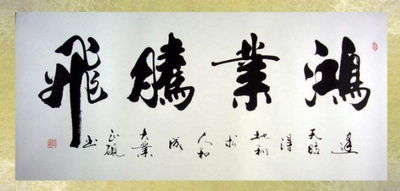 鴻業騰飛
逢天時得地利人和成大業書